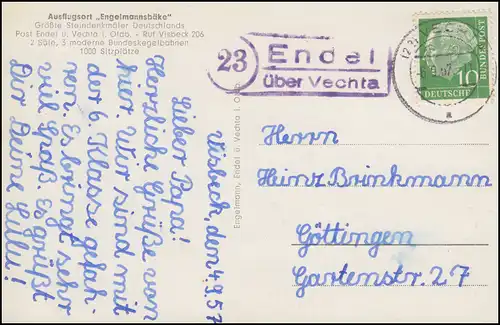 Ausflugsort „Engelmannsbäke"
Größte Steindenkmäler Deutschlands
Post Endel ü. Vechta i. Oldb. - Ruf Visbeck 206
2 Säle, 3 moderne Bundeskegelbahnen
1000 Sitzplätze
Visbeck, den 4.9.57
Lieber Papa!
Herzliche Grüße von
hier. Wir sind mit
der 6. Klasse gefah-
ren. Es bringt sehr
viel Spaß. Es grüßt
Dir Deine Lulu!
Engelmann, Endel ü. Vechta i. O.
23
Endel
über Vechta
10
DEUTSCHE
BUNDESPOST
(23)
a
Herrn
Heinz Brinkmann
Göttingen
Gartenstr. 27